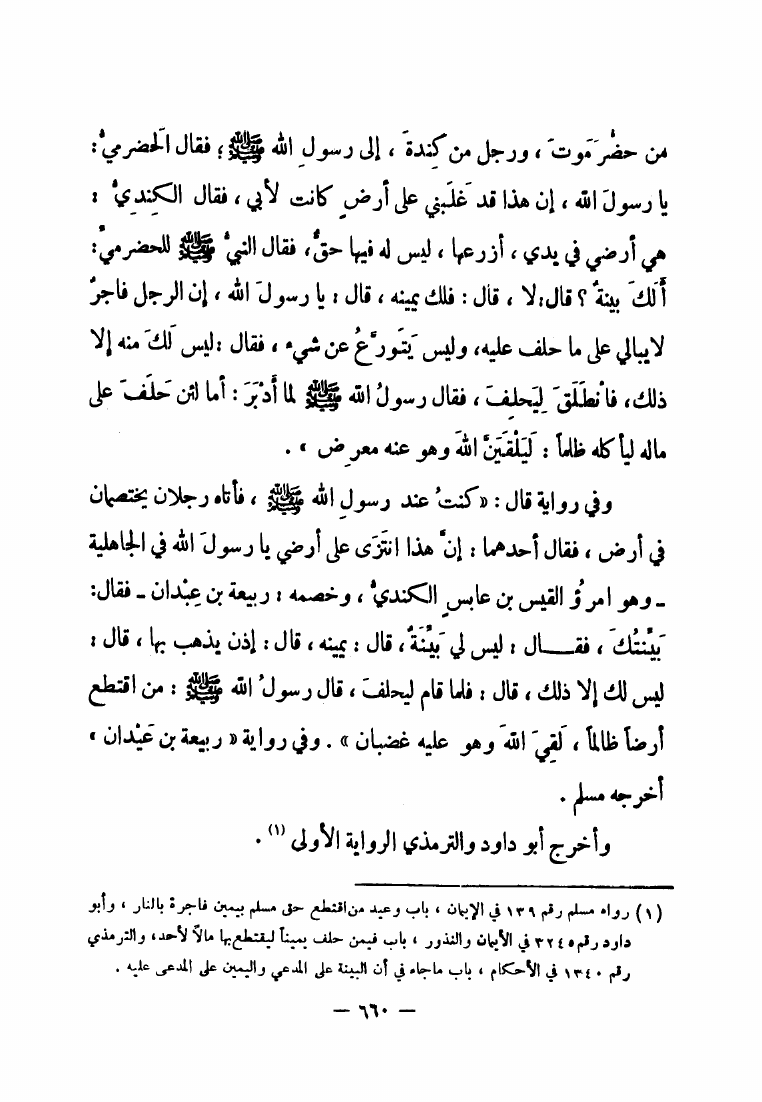 من حضْرَمَوتَ ، ورجل من كِندةَ ، إلى رسولِ الله ﷺ ؛ فقال الحَضرميُّ :
يا رسولَ الله ، إن هذا قد غَلَبَني على أرضٍ كانت لأبي ، فقال الكِندِيُّ :
هي أرضي في يدي ، أزرعها ، ليس له فيها حقٌّ، فقال النبيُّ ﷺ للحضرميِّ:
أَلَكَ بينةٌ ؟ قال: لا ، قال : فلك يمينه ، قال : يا رسولَ الله ، إن الرجل فاجرٌ
لايبالي على ما حلف عليه، وليس يَتَورَّعُ عن شيء ، فقال : ليس لَكَ منه إلا
ذلك، فانْطَلَقَ لِيَحلِفَ ، فقال رسولُ الله ﷺ لما أَدْبَرَ : أما لئن حَلَفَ على
ماله ليأكله ظلماً : لَيَلْقَيَنَّ اللهَ وهو عنه معرِض » .
وفي رواية قال : «كنتُ عند رسولِ الله ﷺ ، فأتاه رجلان يختصمان
في أرض ، فقال أحدهما : إنَّ هذا انتَزَى على أرضي يا رسولَ الله في الجاهلية
ـ وهو امرؤُ القيس بن عابسٍ الكنديُّ ، وخصمه : ربيعة بن عِبْدان ـ فقال:
بَيِّنتُكَ ، فقـــال : ليس لي بَيِّنَةٌ ، قال : يمينه ، قال : إذن يذهب بها ، قال :
ليس لك إلا ذلك ، قال : فلما قام ليحلفَ ، قال رسولُ الله ﷺ : من اقتطع
أرضاً ظالماً ، لَقِيَ اللهَ وهو عليه غضبان » . وفي رواية « ربيعة بن عَيْدان »
أخرجه مسلم .
وأخرج أبو داود والترمذي الرواية الأولى (١) .
(١) رواه مسلم رقم ١٣٩ في الإيمان ، باب وعيد من اقتطع حق مسلم بيمين فاجرة بالنار ، وأبو
داود رقم ٣٢٤٥ في الأيمان والنذور ، باب فيمن حلف يميناً ليقتطع بها مالاً لأحد، والترمذي
رقم ١٣٤٠ في الأحكام ، باب ماجاء في أن البينة على المدعي واليمين على المدعى عليه .
— ٦٦٠ —